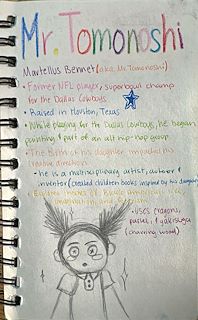 Mr. Tomonoshi
Martellus Bennet (aka Mr. Tomonoshi)
• Former NFL player, superbowl champ
for the Dallas Cowboys
• Raised in Houston, Texas
• While playing for the Dallas Cowboys, he began
painting & part of an alt hip-hop group
• The birth of his daughter impacted his
creative direction
- he is a multidisciplinary artist, author &
inventor (created children books inspired by his daughter)
• Explores themes of Black
imagination, and
• uses crayons,
pastel, & yakisugi
(charring wood)